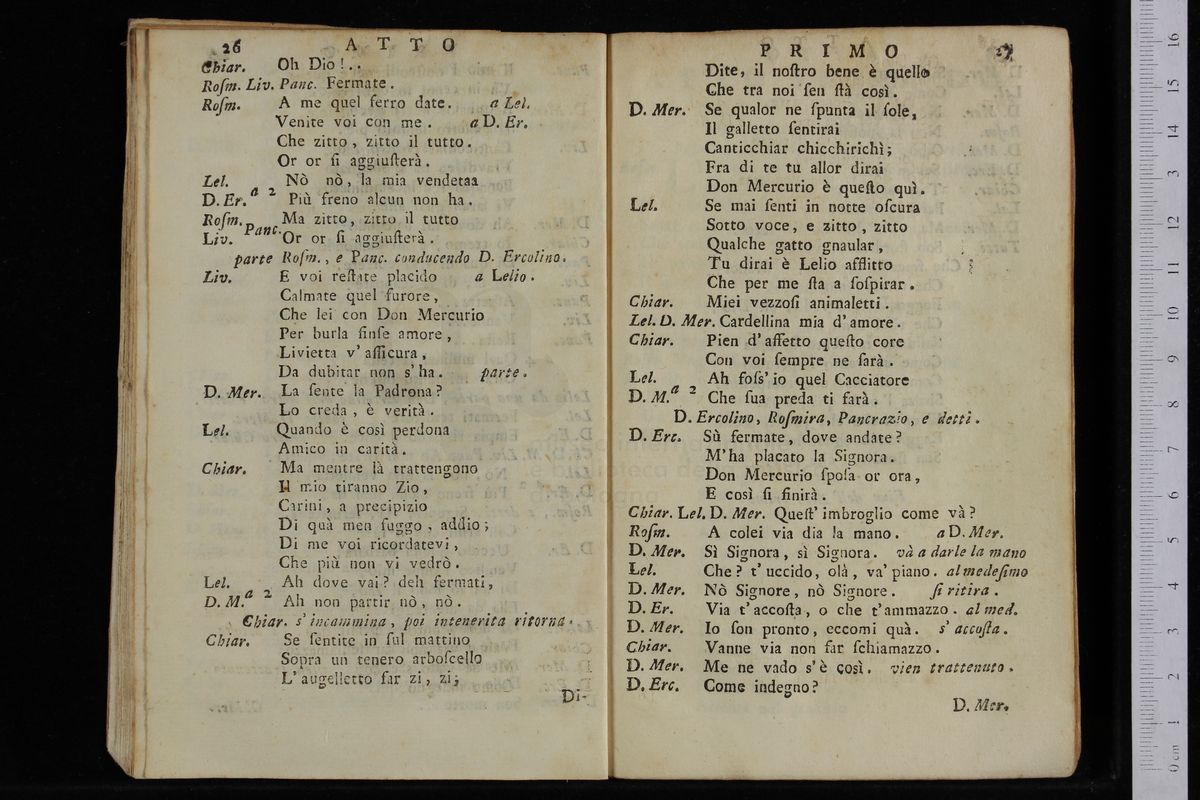 26 ATTO
Chiar. Oh Dio!..
Roſm. Liv. Panc. Fermate.
Roſm. A me quel ferro date. a Lel.
Venite voi con me. a D. Er.
Che zitto, zitto il tutto.
Or or ſi aggiuſterà.
Lel. Nò nò, la mia vendetaa
D. Er. a 2 Più freno alcun non ha.
Roſm. Ma zitto, zitto il tutto
Liv. Panc. Or or ſi aggiuſterà.
parte Roſm., e Panc. conducendo D. Ercolino.
Liv. E voi reſtate placido a Lelio.
Calmate quel furore,
Che lei con Don Mercurio
Per burla finſe amore,
Livietta v'aſſicura,
Da dubitar non s'ha. parte.
D. Mer. La ſente la Padrona?
Lo creda, è verità.
Lel. Quando è così perdona
Amico in carità.
Chiar. Ma mentre là trattengono
Il mio tiranno Zio,
Carini, a precipizio
Di quà men fuggo, addio;
Di me voi ricordatevi,
Che più non vi vedrò.
Lel. Ah dove vai? deh fermati,
D. M. a 2 Ah non partir nò, nò.
Chiar. s'incammina, poi intenerita ritorna.
Chiar. Se ſentite in ſul mattino
Sopra un tenero arboſcello
L'augelletto far zi, zi;
Di-
PRIMO 27
Dite, il noſtro bene è quello
Che tra noi ſen ſtà così.
D. Mer. Se qualor ne ſpunta il ſole,
Il galletto ſentirai
Canticchiar chicchirichì;
Fra di te tu allor dirai
Don Mercurio è queſto quì.
Lel. Se mai ſenti in notte oſcura
Sotto voce, e zitto, zitto
Qualche gatto gnaular,
Tu dirai è Lelio afflitto
Che per me ſta a ſoſpirar.
Chiar. Miei vezzoſi animaletti.
Lel. D. Mer. Cardellina mia d'amore.
Chiar. Pien d'affetto queſto core
Con voi ſempre ne ſarà.
Lel. Ah foſs'io quel Cacciatore
D. M. a 2 Che ſua preda ti farà.
D. Ercolino, Roſmira, Pancrazio, e detti.
D. Erc. Sù fermate, dove andate?
M'ha placato la Signora.
Don Mercurio ſpoſa or ora,
E così ſi finirà.
Chiar. Lel. D. Mer. Queſt'imbroglio come và?
Roſm. A colei via dia la mano. a D. Mer.
D. Mer. Sì Signora, sì Signora. và a darle la mano
Lel. Che? t'uccido, olà, va' piano. al medeſimo
D. Mer. Nò Signore, nò Signore. ſi ritira.
D. Er. Via t'accoſta, o che t'ammazzo. al med.
D. Mer. Io ſon pronto, eccomi quà. s'accoſta.
Chiar. Vanne via non far ſchiamazzo.
D. Mer. Me ne vado s'è così. vien trattenuto.
D. Erc. Come indegno?
D. Mer.
0 cm 1 2 3 4 5 6 7 8 9 10 11 12 13 14 15 16